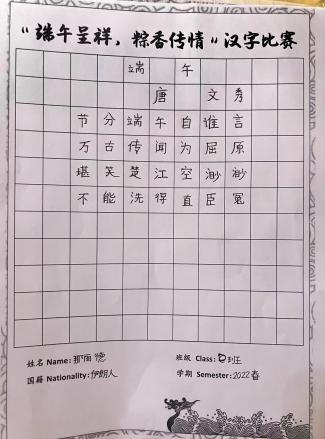 “端午呈祥，粽香传情”汉字比赛
端 午
唐 文秀
节分端午自谁言
万古传闻为屈原
堪笑楚江空渺渺
不能洗得直臣冤
姓名 Name: 德
班级 Class: D班
国籍 Nationality: 伊朗人
学期 Semester: 2022春